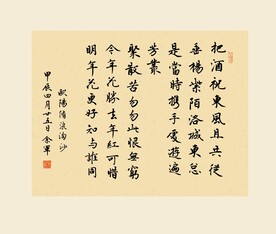 把酒祝東風且共從
垂楊紫陌洛城東怱
是當時携手處遊遍
芳叢
聚散苦匆匆此恨無窮
今年花勝去年紅可惜
明年花更好知與誰同
歐陽脩浪淘沙
甲辰四月廿五日余軍